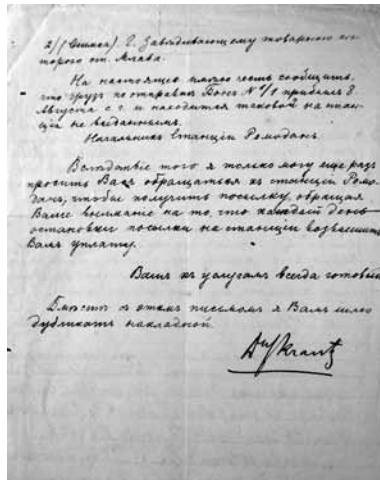 2/ Г. Завѣдывающему товарною кон
торою ст. Млава.
На настоящее имѣю честь сообщить,
что грузъ по отправкѣ № 1/1 прибылъ 8
Августа с. г. и находится таковой на станціи
не выданнымъ.
Начальникъ Станціи Ромоданъ.
Вслѣдствіе того я только могу еще разъ
просить Васъ обращаться къ станціи Ромо
данъ, чтобы получить посылку, обращая
Ваше вниманіе на то, что каждый день
остановки посылки на станціи возвышаетъ
Вамъ уплату.
Вашъ къ услугамъ всегда готовый
Вмѣстѣ съ этимъ письмомъ я Вамъ шлю
дубликатъ накладной.
Krantz